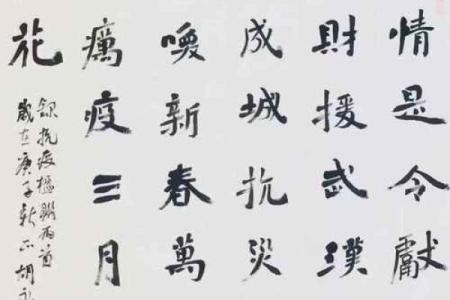 情是令獻
財援武漢
成城抗災
喚新春萬
癘疫三月
花
録抗疫楹聯两首
歲在庚子新正胡